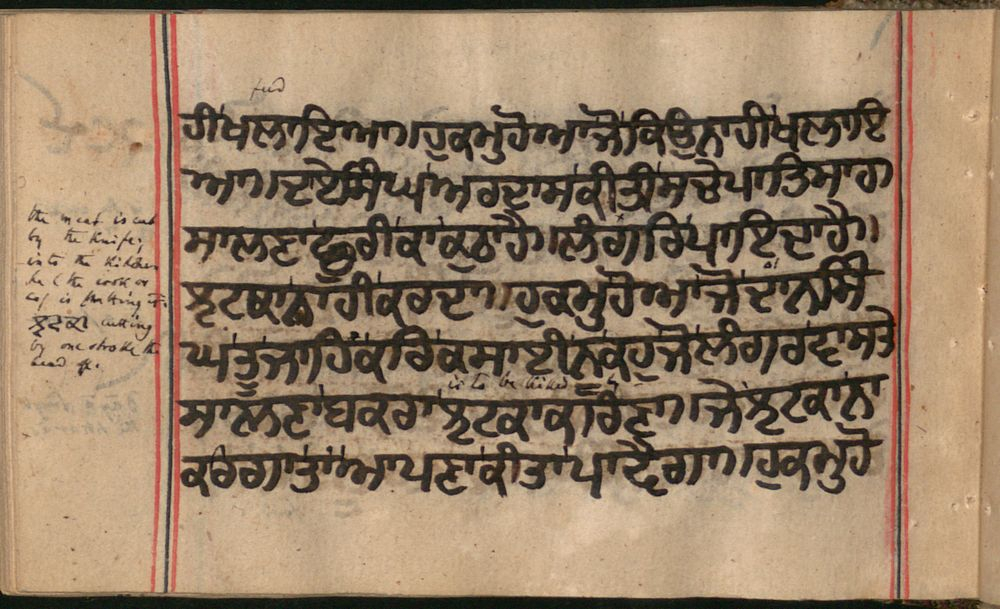 fed
ਹੀਖਲਾਇਆ।ਹੁਕਮੁਹੋਆਜੋਕਿਉਨਾਹੀਖਲਾਇ
ਆ।ਦਾਏਸਿੰਘਅਰਦਾਸਕੀਤੀਸਚੇਪਾਤਿਸਾਹ।
ਸਾਲਣਾਛੁਰੀਕਾਕੁਠਾਹੈ।ਲੰਗਰਿਪਾਇਦਾਹੈ।
ਝੁਟਕਾਨਾਹੀਕਰਦਾ।ਹੁਕਮੁਹੋਆਜੋਦਾਨਸਿੰ
ਘਤੂਜਾਹਿਕਰਿਕਸਾਈਨਕਹੁਜੋਲੰਗਰਦਵਾਸਤੇ
is to be killed
ਸਾਲਣਾਬਕਰਾਝੁਟਕਾਕਰਿਣਾ।ਜੋਝੁਟਕਾਨਾ
ਕਰੇਗਾਤਾਆਪਣਾਕੀਤਾਪਾਵੈਗਾ।ਹੁਕਮੁਹੋ
the meat is cut
by the knife;
into the kitchen
he (the cook or
is putting it.
ਝੁਟਕਾ cutting
by one stroke the
head off.